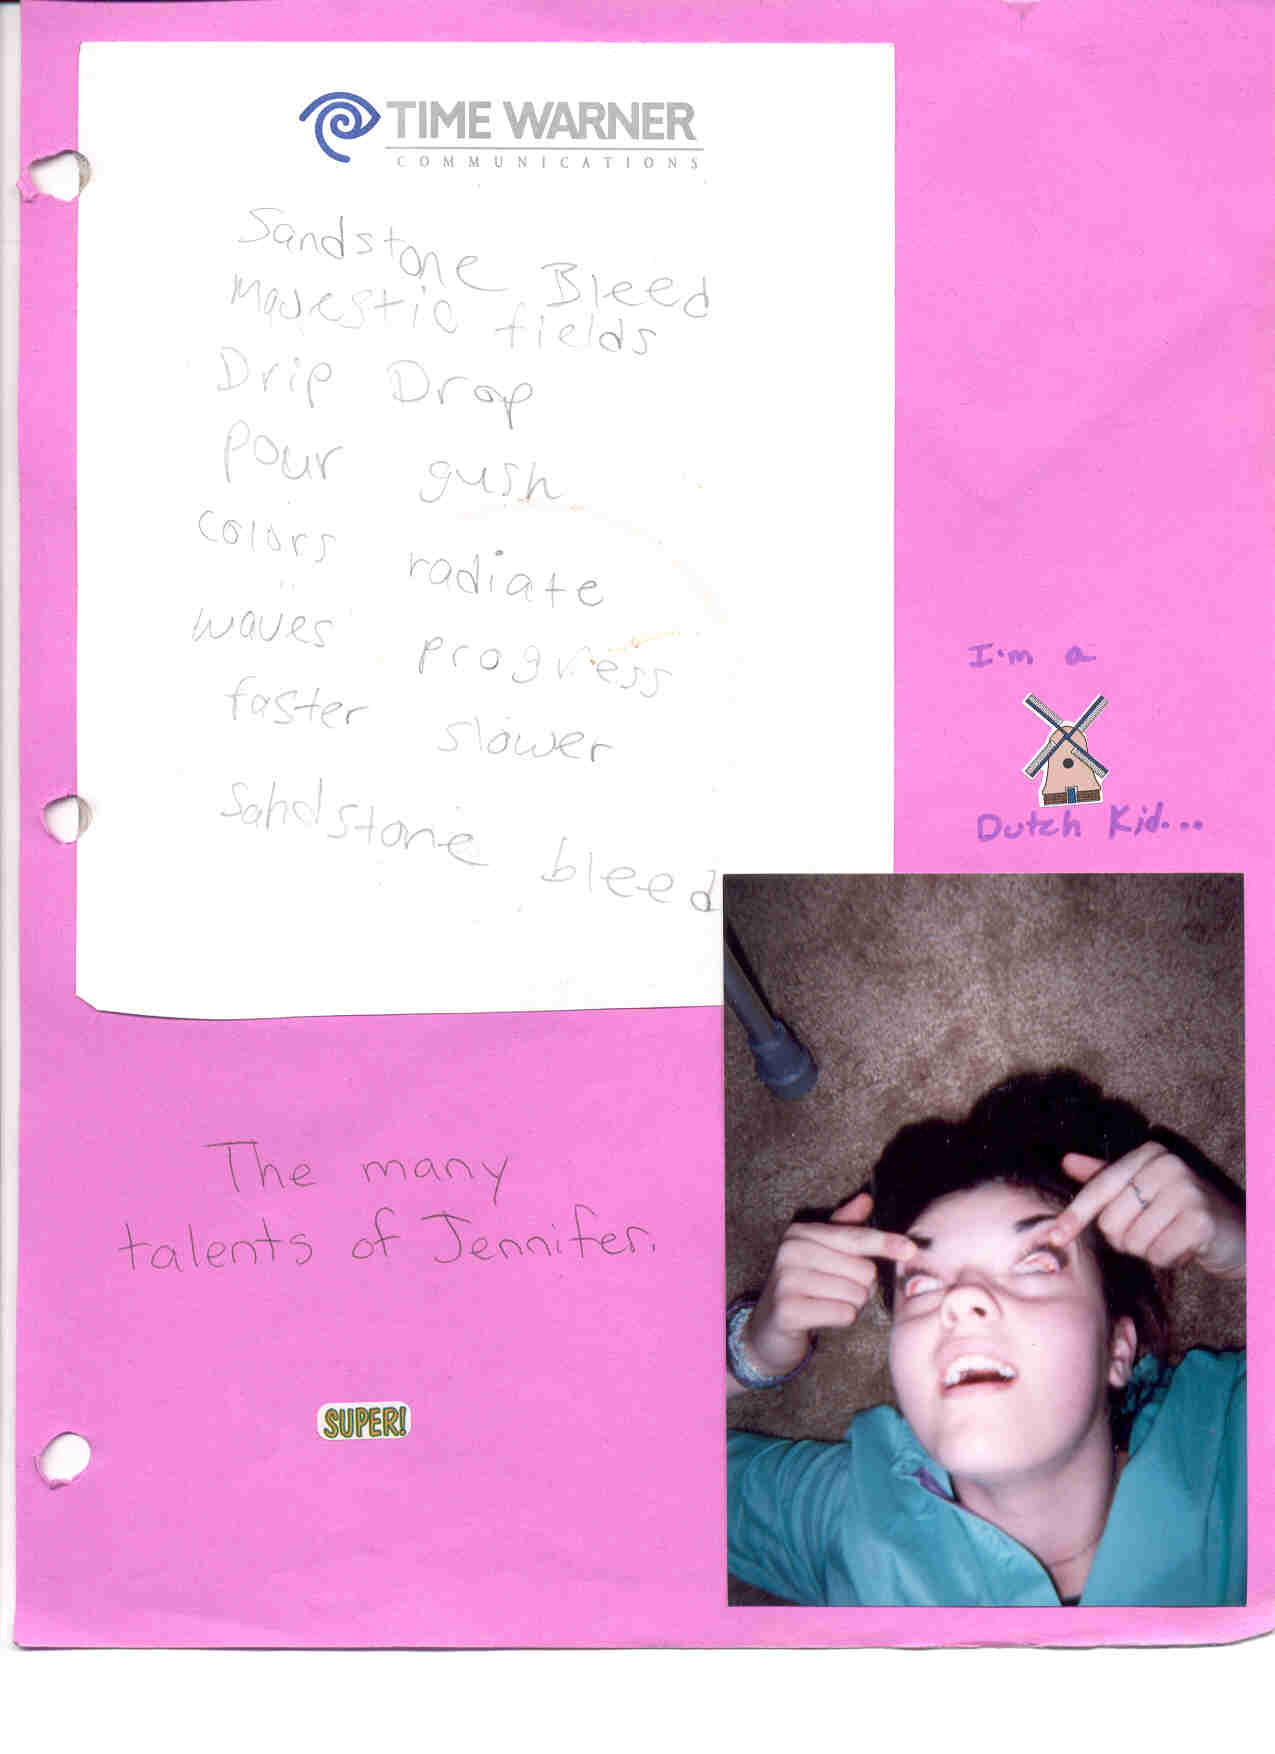 TIME WARNER
COMMUNICATIONS
Sandstone Bleed
Majestic fields
Drip Drop
Pour gush
colors radiate
waves progress
faster slower
Sandstone bleed
I'm a
Dutch Kid...
The many
talents of Jennifer.
SUPER!